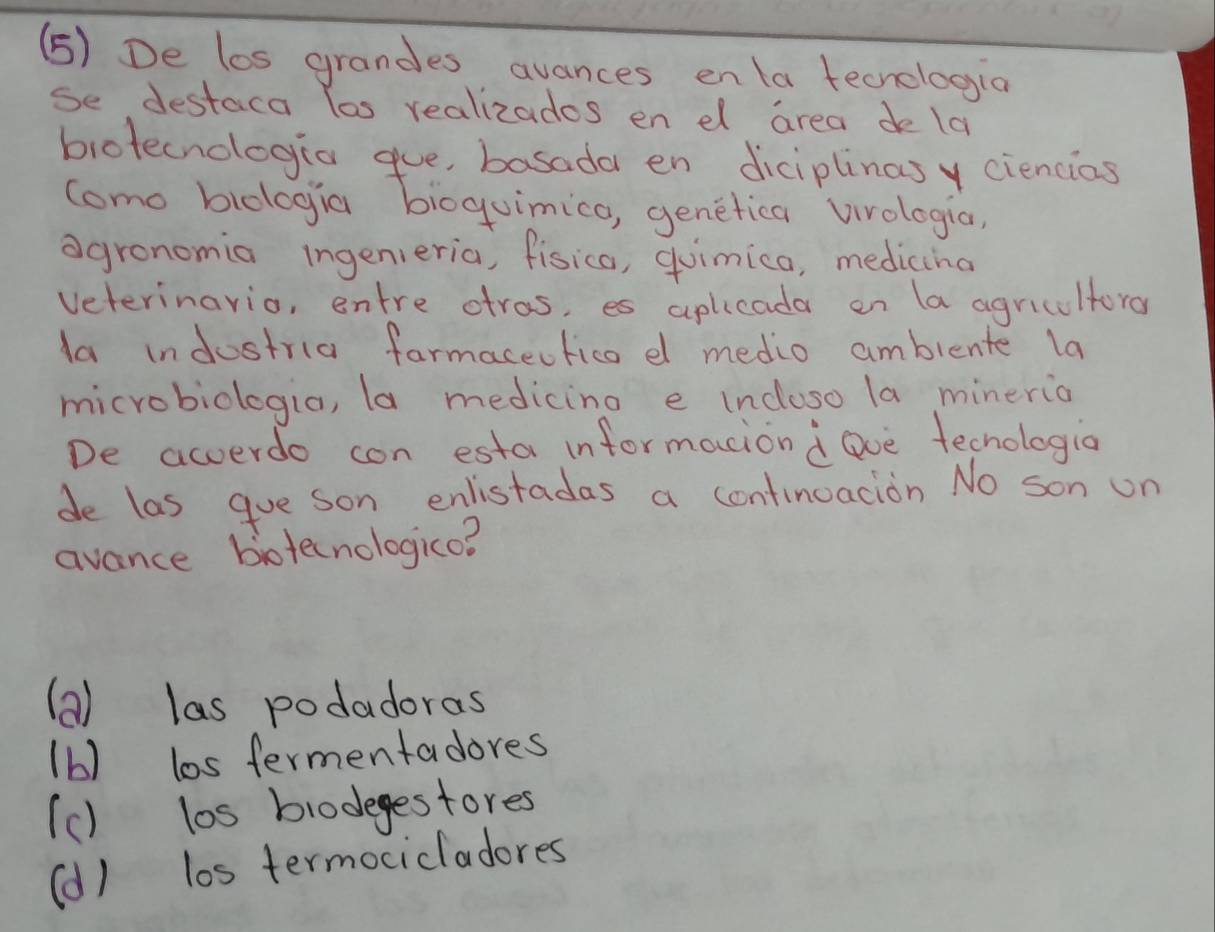 (5) De los grandes avances en la tecnologia
se destaca los realizados en el área de la
biotecnologia que, basada en diciplinas y ciencias
Como biología bioquimica, genética virologia,
agronomia ingenieria, fisica, química, medicina
veterinaria, entre otras, es aplicada en la agricultura
la industria farmaceutica el medio ambiente la
microbiologia, la medicina e incluso la mineria
De acuerdo con esta información ¿Qué tecnologia
de las que son enlistadas a continuación No son un
avance biotecnologico?
(a) las podadoras
(b) los fermentadores
(c) los biodegestores
(d) los termocicladores